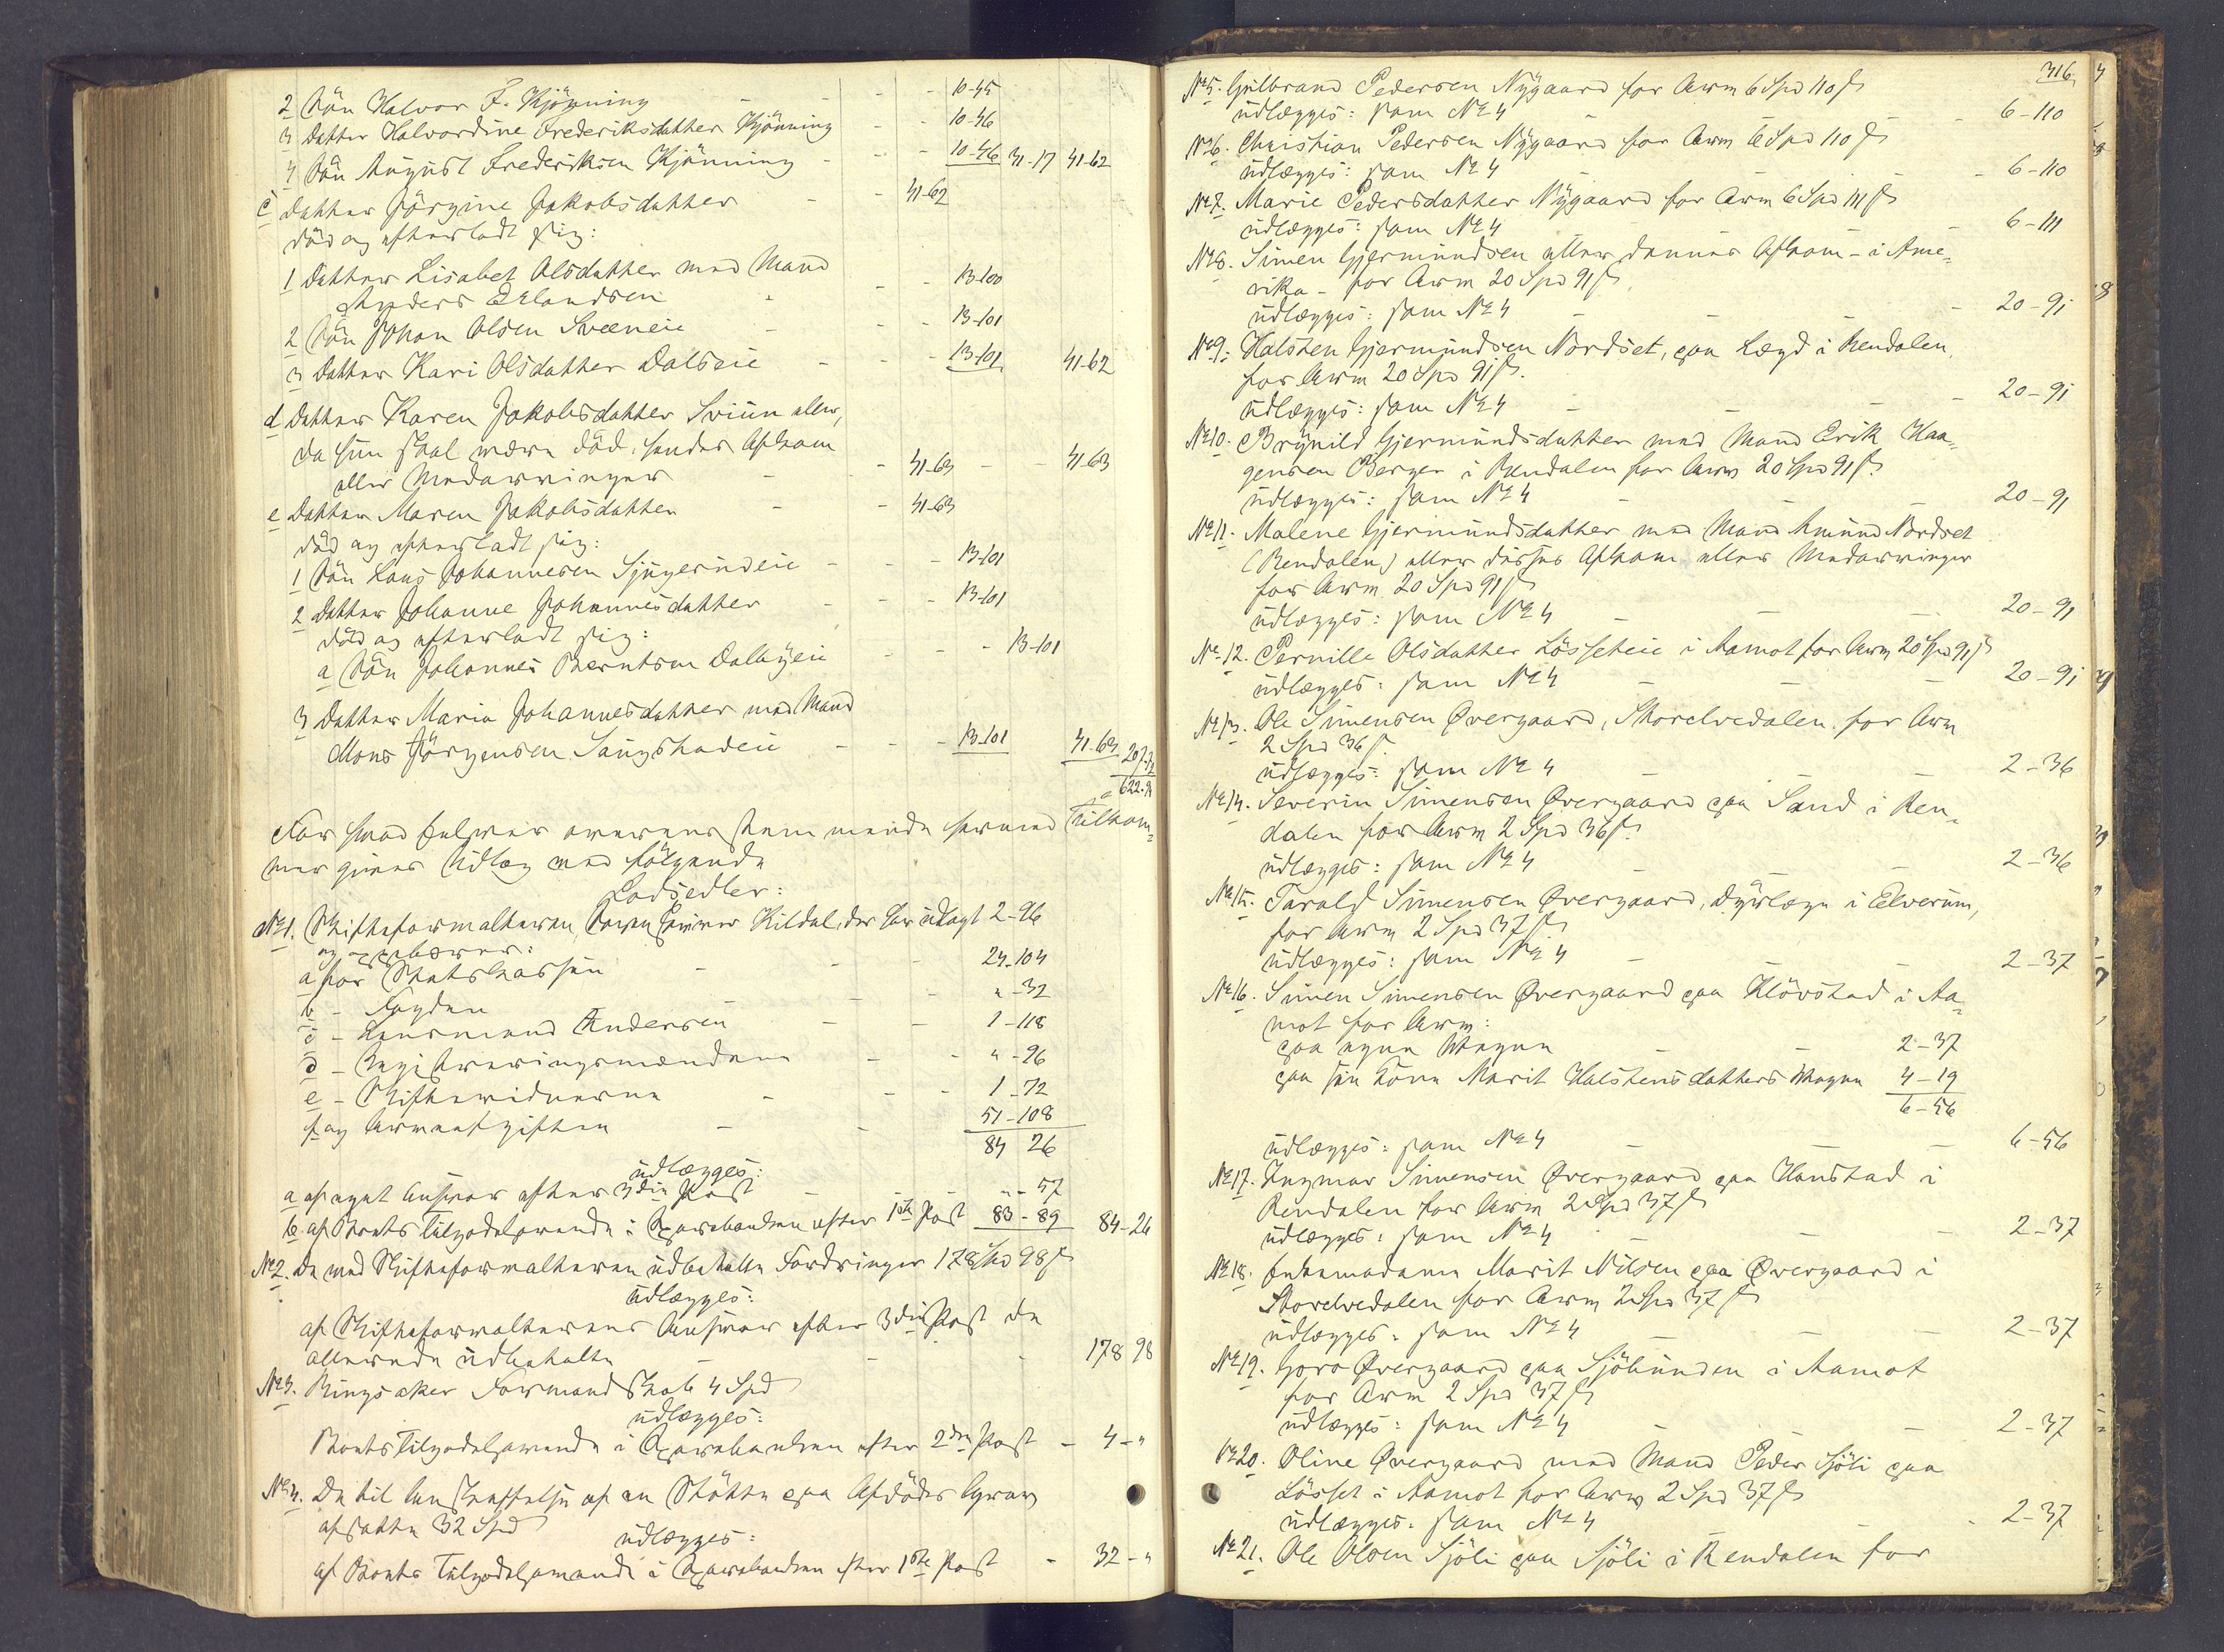 2 Søn Halvor F. Kjønning - - - - 10-45
3 Datter Halvordine Frederiksdatter Kjønning - - 10-46
4 Søn August Frederiksen Kjønning - - - 10-46 41-17 41-62
c Datter Jörgine Jakobsdatter - - 41-62
död og efterladt sig:
1 Datter Lisabet Olsdatter med Mand
Anders Erlandsen - - - 13-100
2 Søn Johan Olsen Sveeneie - - - 13-101
3 Datter Kari Olsdatter Dalseie - - - 13-101 41-62
d Datter Karen Jakobsdatter Sviun eller,
da hun skal være död, hendes Afkom
eller Medarvinger - - 41-63 - - 41-63
e Datter Maren Jakobsdatter - - 41-63
död og efterladt sig:
1 Søn Lars Johannesen Sjugerudeie - - - 13-101
2 Datter Johanne Johannesdatter - - - 13-101
död og efterladt sig:
a Søn Johannes Berntsen Dalbyeie - - - 13-101
3 Datter Maria Johannesdatter med Mand
Mons Jörgensen Saugstadeie - - - 13-101 41-63 207-72
622-
For hvad Enhver overensstemmende hermed tilkom-
mer gives Udlæg med følgende
Lodsedler:
No 1. Skifteforvalteren, Sorenskriver Kildal, der har udlagt 2-96
og oppebærer:
a for Statskassen - - - 24-104
b - Fogden - - - " -32
c - Lensmand Andersen - - 1-118
d - Registreringsmændene - - " -96
e - Skiftevidnerne - - - 1-72
f og Arveafgiften - - 51-108
84 26
udlægges:
a af eget Ansvar efter 3die Post - - " - 57
b af Boets Tilgodehavende i Sparebanken efter 1ste Post 83-89 84-26
No 2. De med Skifteforvalteren udbetalte Fordringer 178 Spd 98 s
udlægges:
af Skifteforvalterens Ansvar efter 3die Post de
allerede udbetalte - - - 178 98
No 3. Ringsaker Formandskab 4 Spd
udlægges:
Boets Tilgodehavende i Sparebanken efter 2den Post - 4-"
No 4. De til Anskaffelse af en Støtte paa Afdødes Grav
afsatte 32 Spd
udlægges:
af Boets Tilgodehavende i Sparebanken efter 1ste Post - 32-"
316
No 5. Gulbrand Pedersen Nygaard for Arv 6 Spd 110 s
udlægges: som No 4 - - - 6-110
No 6. Christian Pedersen Nygaard for Arv 6 Spd 110 s
udlægges: som No 4 - - - 6-110
No 7. Marie Pedersdatter Nygaard for Arv 6 Spd 111 s
udlægges: som No 4 - - - 6-111
No 8. Simen Gjermundsen eller dennes Afkom - i Ame-
rika - for Arv 20 Spd 91 s
udlægges: som No 4 - - - 20-91
No 9. Halsten Gjermundsen Nordset, paa Lægd i Rendalen,
for Arv 20 Spd 91 s.
udlægges: som No 4 - - - 20-91
No 10. Brynild Gjermundsdatter med Mand Erik Haa-
gensen Berger i Rendalen for Arv 20 Spd 91 s
udlægges: som No 4 - - - 20-91
No 11. Malene Gjermundsdatter med Mand Amund Nordset
(Rendalen) eller disses Afkom eller Medarvinger
for Arv 20 Spd 91 s
udlægges: som No 4 - - - 20-91
No 12. Pernille Olsdatter Lösseteie i Aamot for Arv 20 Spd 91 s
udlægges: som No 4 - - - 20-91
No 13. Ole Simensen Øvergaard, Storelvedalen for Arv
2 Spd 36 s
udlægges: som No 4 - - - 2-36
No 14. Severin Simensen Øvergaard paa Sand i Ren-
dalen for Arv 2 Spd 36 s
udlægges: som No 4 - - 2-36
No 15. Tarald Simensen Øvergaard, Dyrlæge i Elverum,
for Arv 2 Spd 37 s
udlægges: som No 4 - - 2-37
No 16. Simen Simensen Øvergaard paa Kløvstad i Aa-
mot for Arv:
paa egne Vegne - - 2-37
paa sin Kone Marit Halstensdatters Vegne 4-19
6-56
udlægges: som No 4 - - - 6-56
No 17. Ingmar Simensen Øvergaard paa Hanstad i
Rendalen for Arv 2 Spd 37 s
udlægges: som No 4 - - - 2-37
No 18. Enkemadame Marit Nilsen paa Øvergaard i
Storelvedalen for Arv 2 Spd 37 s
udlægges: som No 4 - - - 2-37
No 19. Goro Øvergaard paa Sjöbunden i Aamot
for Arv 2 Spd 37 s
udlægges: som No 4 - - 2-37
No 20. Oline Øvergaard med Mand Peder Sjöli paa
Lösset i Aamot for Arv 2 Spd 37 s
udlægges: som No 4 - - 2-37
No 21. Ole Olsen Sjöli paa Sjöli i Rendalen for